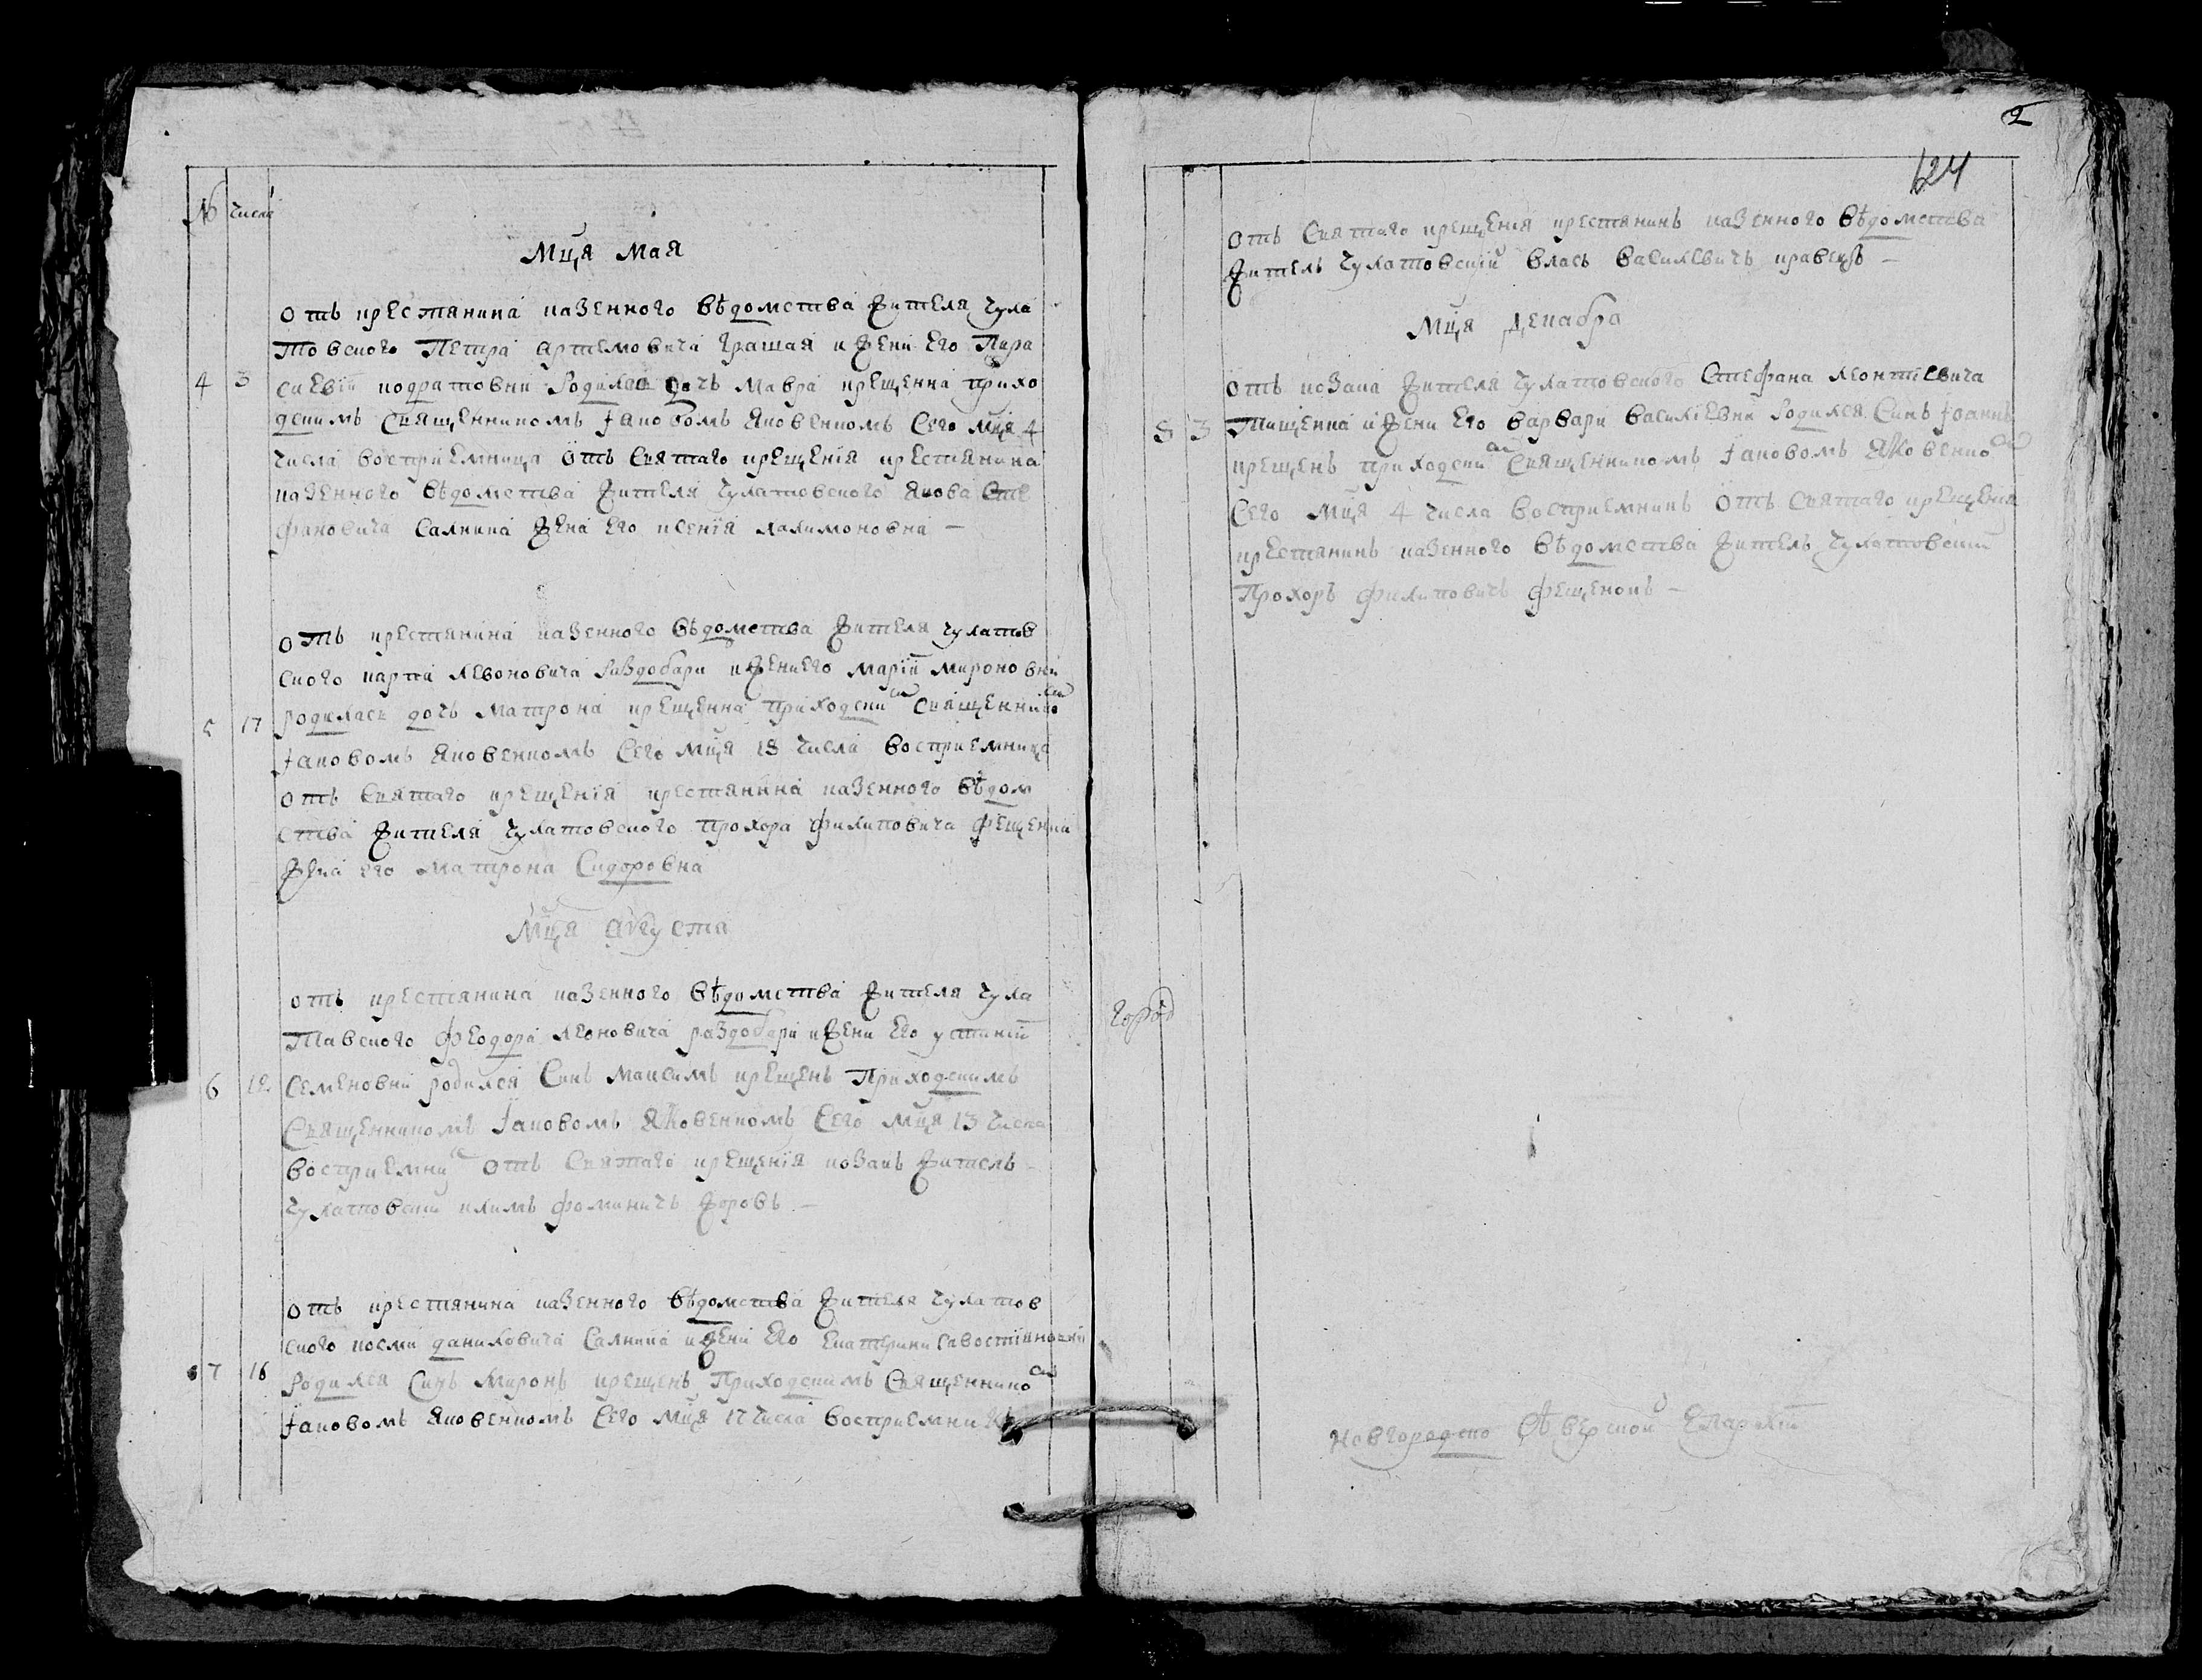 № Числа
Мца Мая
отъ крестянина казенного вѣдомства жителя чула
товского Петра Артемовича Грашая и жени Его Пара
4 3 скевіи кодратовни Родилася дочъ Мавра крещенна прихо
дскимъ Священникомъ Іаковомъ Яковенкомъ Сего Мца 4
числа восприемница Отъ Святаго крещенія крестянина
казенного вѣдомства жителя чулатовского Якова Сте
фановича Салника жена Его ксенія халимоновна —
отъ крестянина казенного вѣдомства жителя чулатов
ского карпа левоновича Раздобари и жени Его маріи мироновни
5 17 родилась дочъ Матрона крещенна приходским Священником
Іаковомъ Яковенкомъ Сего мца 18 числа восприемница
отъ Святаго крещенія крестянина казенного вѣдом
ства жителя чулатовского прохора филиповича Фещенка
жена его Матрона Сидоровна
Мца Августа
отъ крестянина казенного вѣдомства жителя чула
тавского Феодора леоновича раздобари и жени Его устиніи
6 12 Семеновни родился Синъ Максимъ крещенъ Приходскимъ
Священникомъ Іаковомъ Яковенкомъ Сего мца 13 числа
восприемник отъ Святаго крещенія козакъ житель
чулатовский климъ фоминичъ жоровъ —
отъ крестянина казенного вѣдомства жителя чулатов
ского косми даниловича Салника и жени Его Екатерини Савостіяновни
7 16 Родился Синъ Миронъ крещенъ Приходскимъ Священником
Іаковомъ Яковенкомъ Сего мца 17 числа восприемникъ
2
124
отъ Святаго крещенія крестянинъ казенного вѣдомства
житель чулатовский власъ василевичъ кравецъ —
Мца декабра
отъ козака жителя чулатовского Стефана леонтиевича
8 3 Тищенка и жени Его варвари василіевни Родился Синъ Іоаннъ
крещенъ приходским Священникомъ Іаковомъ Яковенком
Сего мца 4 числа восприемникъ отъ Святаго крещенія
крестянинъ казенного вѣдомства житель чулатовский
Прохоръ филиповичъ фещенокъ —
город
Новгородско Сѣверской Епархіи